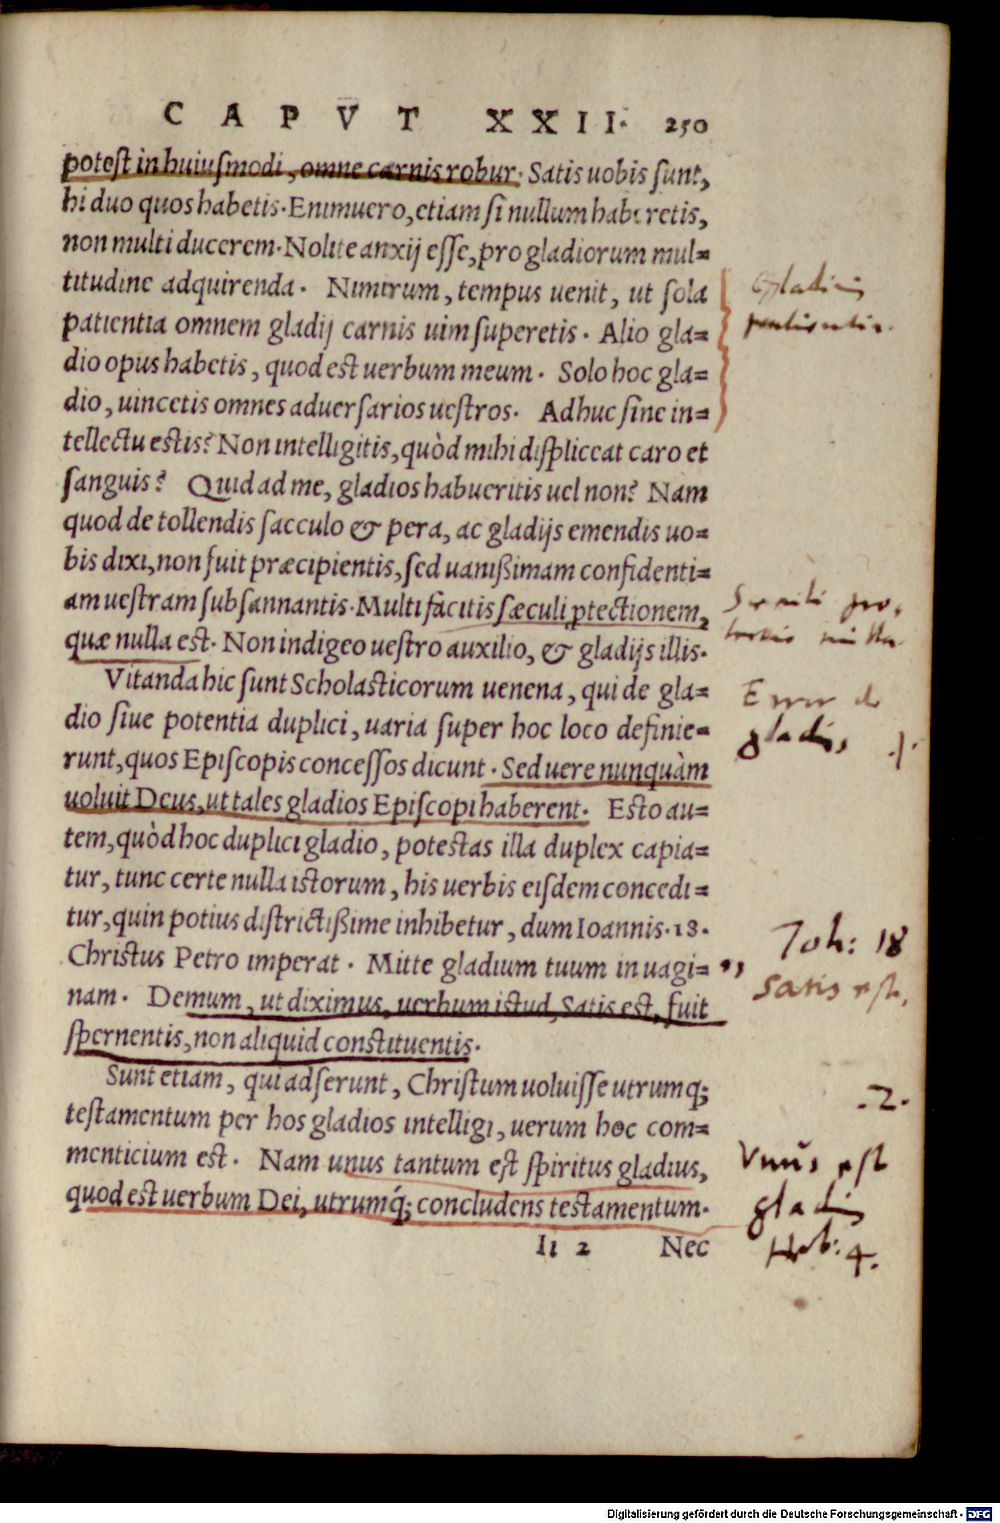 CAPVT XXII. 250
potest in huiuſmodi, omne carnis robur. Satis uobis ſunt,
hi duo quos habetis. Enimuero, etiam ſi nullum haberetis,
non multi ducerem. Nolite anxij eſſe, pro gladiorum mul=
titudine adquirenda. Nimirum, tempus uenit, ut ſola
patientia omnem gladij carnis uim ſuperetis. Alio gla=
dio opus habetis, quod est uerbum meum. Solo hoc gla=
dio, uincetis omnes aduerſarios ueſtros. Adhuc ſine in=
tellectu estis? Non intelligitis, quòd mihi diſpliceat caro et
ſanguis? Quid ad me, gladios habueritis uel non? Nam
quod de tollendis ſacculo & pera, ac gladijs emendis uo=
bis dixi, non fuit præcipientis, ſed uanißimam confidenti=
am ueſtram ſubſannantis. Multi facitis ſæculi ptectionem,
quæ nulla est. Non indigeo ueſtro auxilio, & gladijs illis.
Vitanda hic ſunt Scholasticorum uenena, qui de gla=
dio ſiue potentia duplici, uaria ſuper hoc loco definie=
runt, quos Epiſcopis conceſſos dicunt. Sed uere nunquàm
uoluit Deus, ut tales gladios Epiſcopi haberent. Esto au=
tem, quòd hoc duplici gladio, potestas illa duplex capia=
tur, tunc certe nulla istorum, his uerbis eiſdem concedi=
tur, quin potius diſtrictißime inhibetur, dum Ioannis. 18.
Christus Petro imperat. Mitte gladium tuum in uagi=
nam. Demum, ut diximus, uerbum istud, Satis est, fuit
ſpernentis, non aliquid constituentis.
Sunt etiam, qui adſerunt, Chriſtum uoluiſſe utrumq;
teſtamentum per hos gladios intelligi, uerum hoc com=
menticium est. Nam unus tantum eſt ſpiritus gladius,
quod est uerbum Dei, utrumq́; concludens testamentum.
Ii 2 Nec
Gladius
patientia.
Error de
gladiis .1.
Joh: 18
Satis est.
.2.
Vnus est
gladius
Heb: 4.
Digitalisierung gefördert durch die Deutsche Forschungsgemeinschaft - DFG